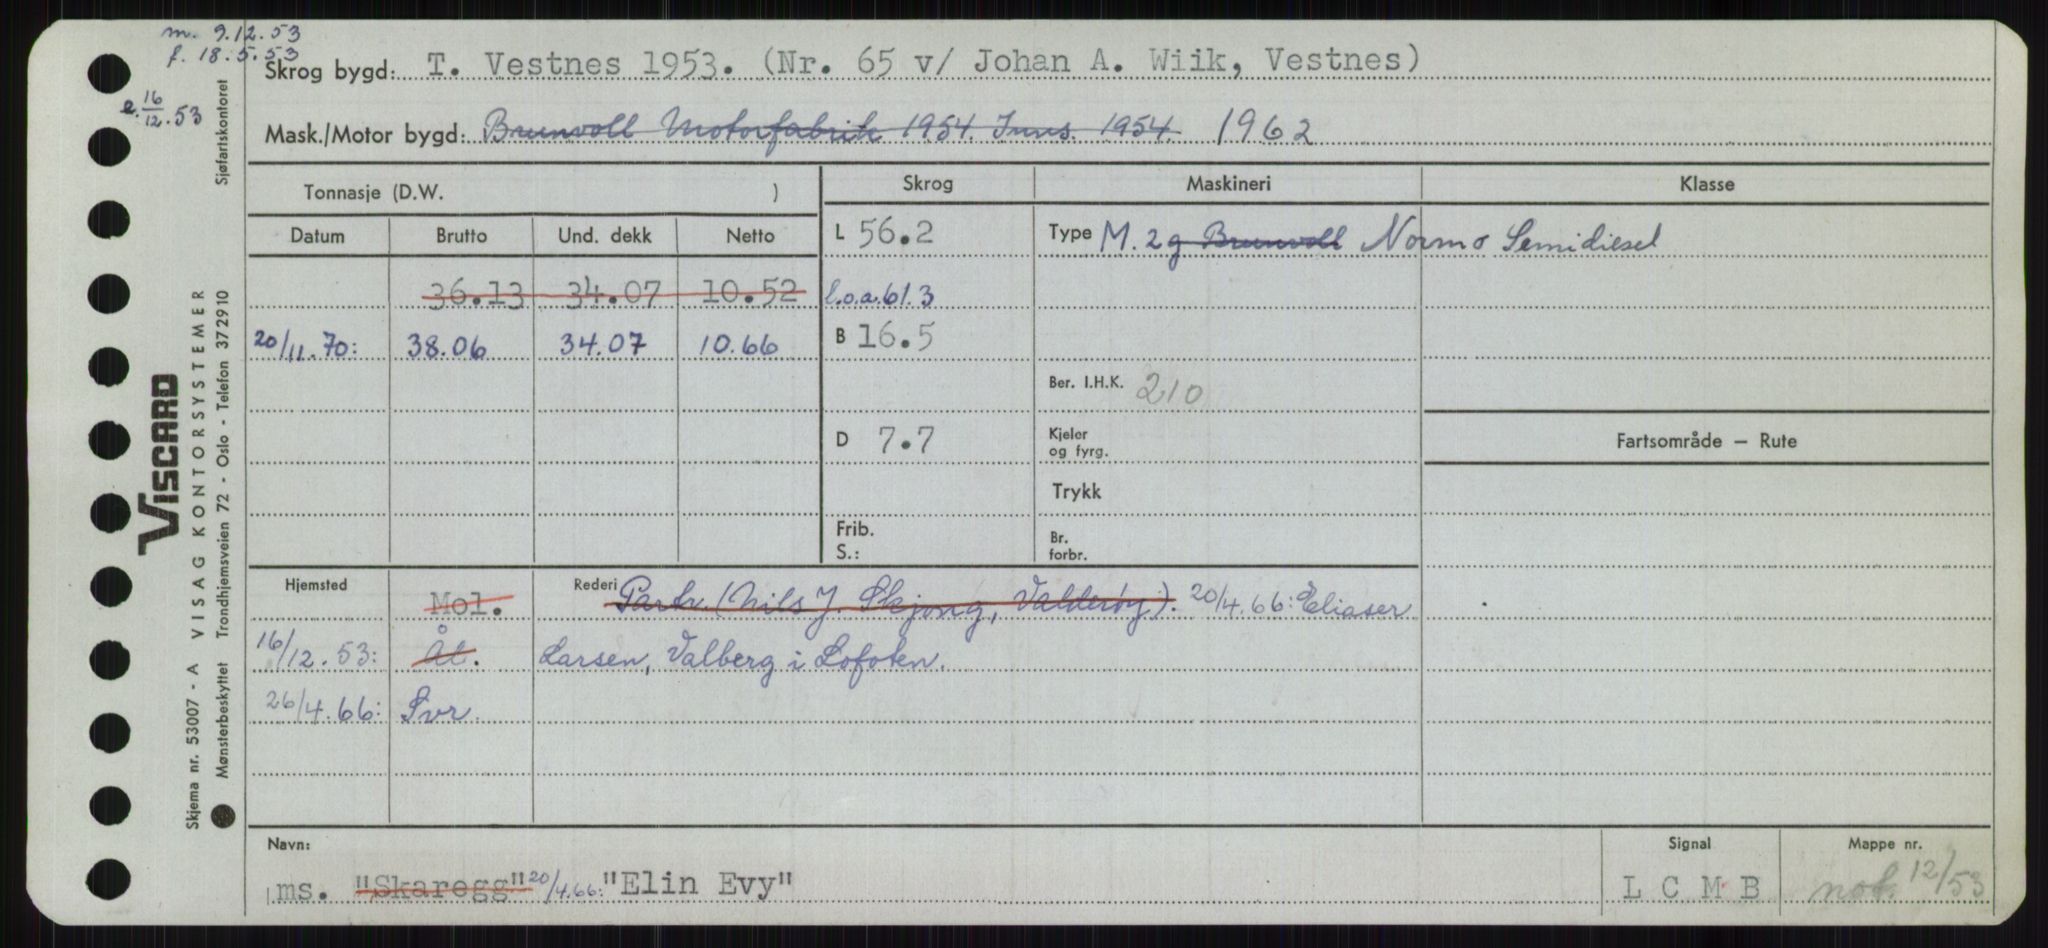 m. 9.12.53
f. 18.5.53
e. 16/12.53
Skrog bygd: T. Vestnes 1953. (Nr. 65 v/ Johan A. Wiik, Vestnes)
Mask./Motor bygd: Brunvoll Motorfabrik 1954. Inns. 1954. 1962
Tonnasje (D.W. )
Skrog Maskineri Klasse
Datum Brutto Und. dekk Netto
L 56.2 Type M. 2g Brunvoll Normo Semidiesel
36.13 34.07 10.52 l.o.a. 61.3
20/11.70: 38.06 34.07 10.66 B 16.5
Ber. I.H.K. 210
D 7.7 Kjeler
og fyrg.
Fartsområde — Rute
Trykk
Frib.
S.:
Br.
forbr.
Hjemsted Mol. Rederi Partr. (Nils J. Skjong, Valderøy). 20/4.66: Eliaser
16/12.53: Ål. Larsen, Valberg i Lofoten.
26/4.66: Svr.
Navn: Signal Mappe nr.
ms. "Skaregg" 20/4.66: "Elin Evy" L C M B not. 12/53
Skjema nr. 53007 - A VISAG KONTORSYSTEMER
Mønsterbeskyttet Trondhjemsveien 72 - Oslo - Telefon 372910
Sjøfartskontoret
VISCARD